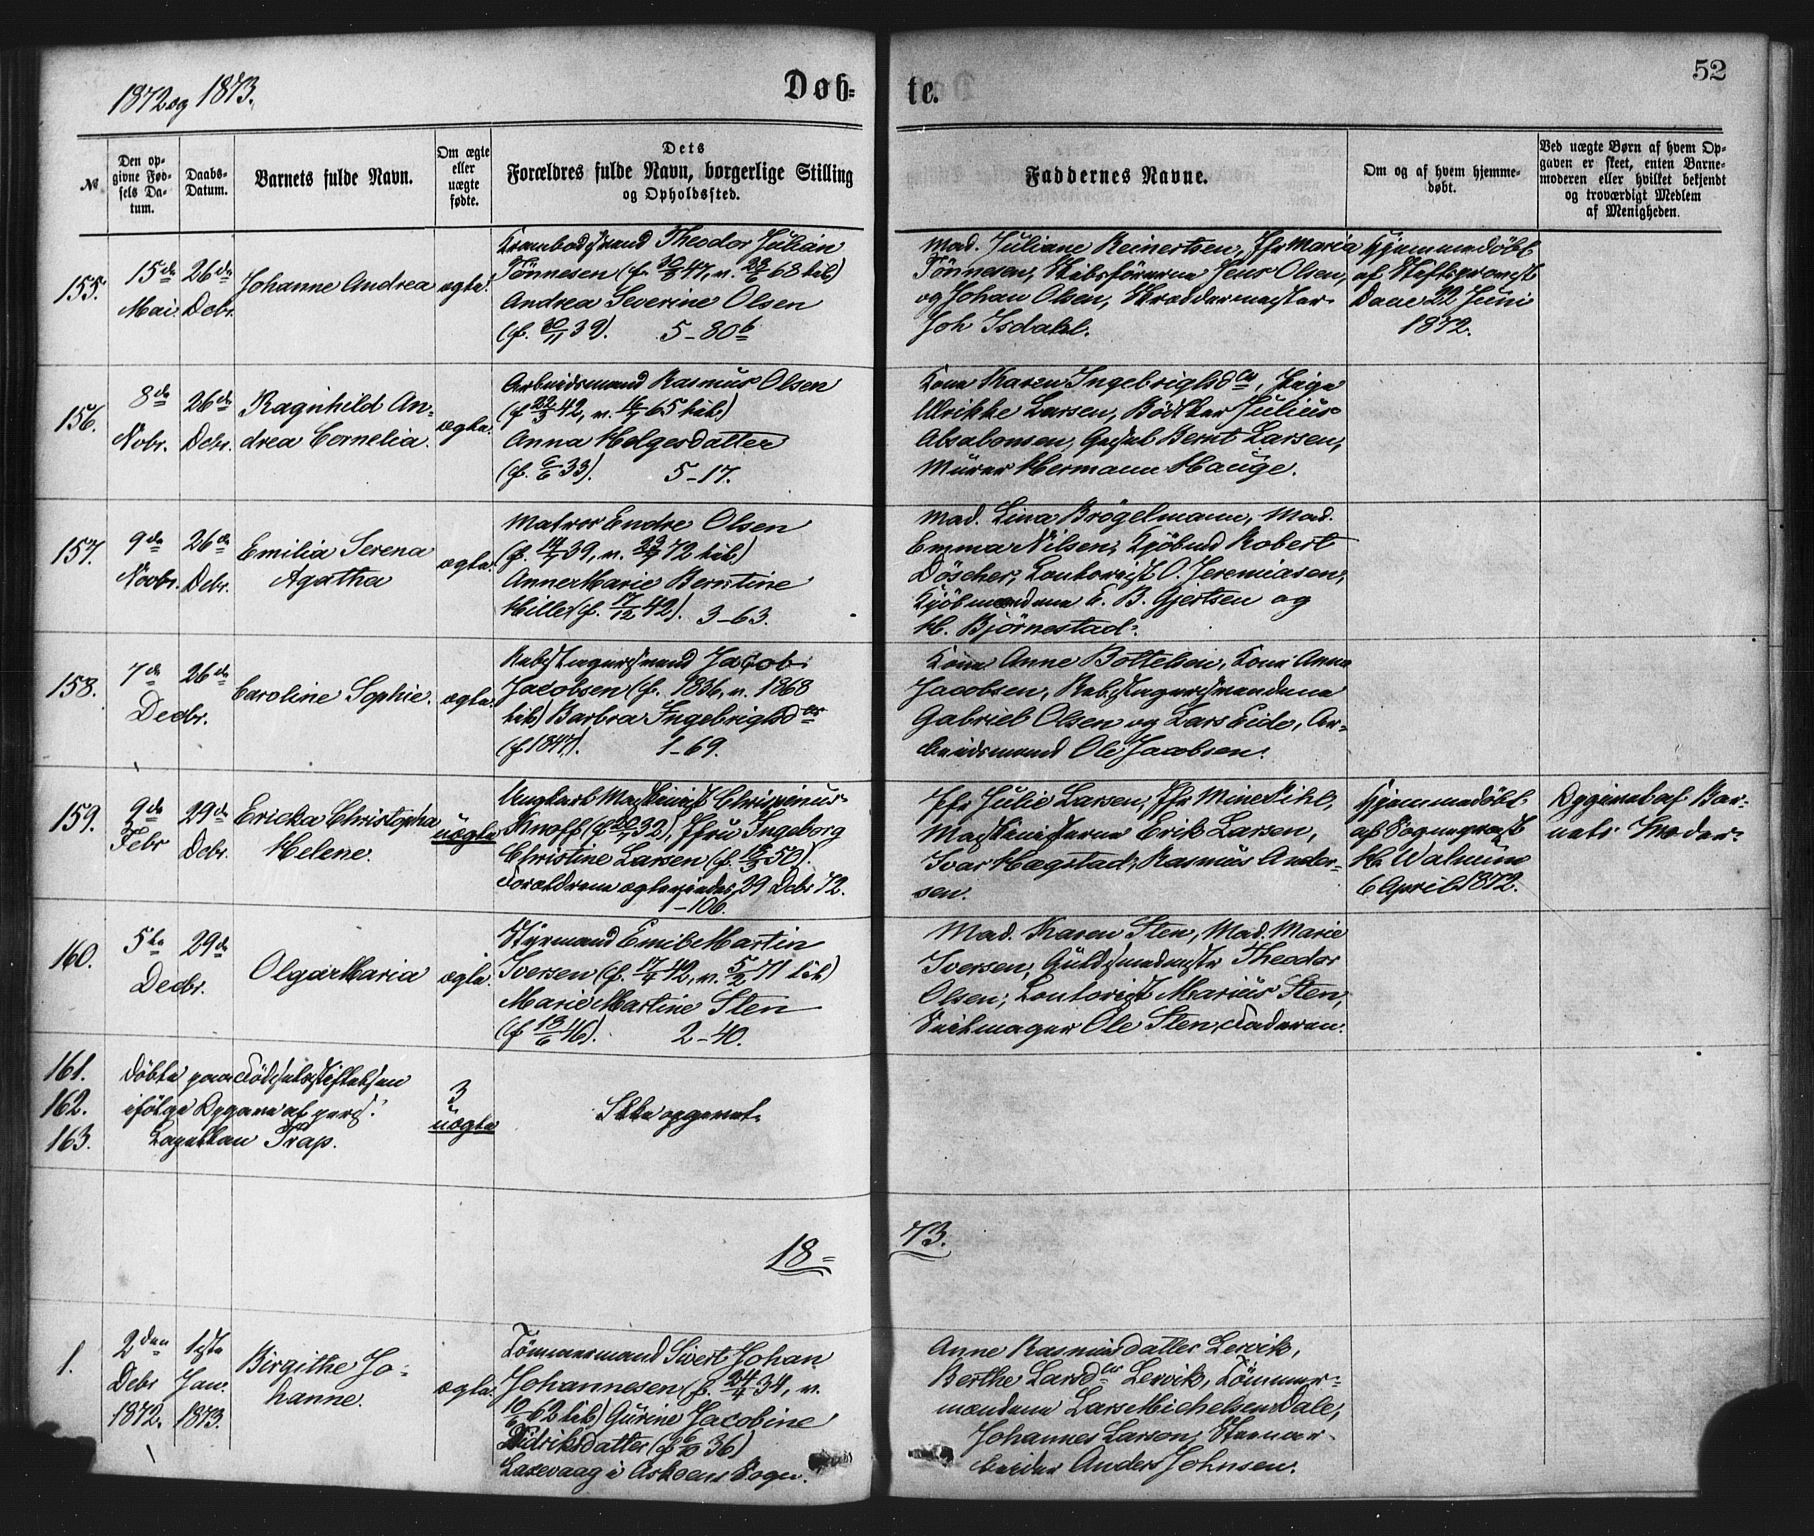 1872 og 1873.
Døb-
te.
52
№
Den op-
givne Fød-
sels Da-
tum.
Daabs-
Datum.
Barnets fulde Navn.
Om ægte
eller
uægte
fødte.
Dets
Forældres fulde Navn, borgerlige Stilling
og Opholdssted.
Faddernes Navne.
Om og af hvem hjemme-
døbt.
Ved uægte Børn af hvem Op-
gaven er skeet, enten Barne-
moderen eller hvilket bekjendt
og troværdigt Medlem
af Menigheden.
155.
15de
Mai.
26de
Debr.
Johanne Andrea
ægte.
Theodor Julian
Tönnesen (f. 30/3 47, v. 28/6 68 kib)
Andrea Severine Olsen
(f. 30/11 39). 5-80b
Mad. Juliane Reinertsen, Jfr Maria
Tönnesen, Skibsförerne Jens Olsen,
og Johan Olsen, Skræddermester
Joh Isdahl.
Hjemmedöbt
af Stiftsprovst
Daae 22 Juni
1872.
156.
8de
Nobr.
26de
Debr.
Ragnhild An-
drea Cornelia.
ægte.
Arbeidsmand Rasmus Olsen
(f 22/3 42, v. 16/7 65 kib)
Anna Helgesdatter
(f. 6/6 33). 5-17.
Kone Karen Ingebrigtsdr, Pige
Ulrikke Larsen, Bödker Julius
Absalonsen, Gesel Bernt Larsen,
Murer Hermann Hauge.
157.
9de
Novbr.
26de
Debr.
Emilia Serena
Agatha
ægte.
Matros Endre Olsen
(f. 14/7 39, v. 72 kib)
Anne Marie Berntine
Hille (f. 17/12 42). 3-63.
Mad. Lina Brögelmann, Mad.
Emma Nilsen, Kjöbmd Robert
Döscher, Kontorist O. Jeremiasen,
Kjöbmændene E. B. Gjertsen og
H. Björnestad.
158.
7de
26de
Decbr.
Caroline Sophie.
ægte.
Rebslagersvend Jacob
Jacobsen (f. 1836, v. 1868
kib) Barbra Ingebrigtsdr
(f 1847). 1-69.
Kone Anne Bottelsen, Kone Anna
Jacobsen, Rebslagersvendene
Gabriel Olsen og Lars Eide, Ar-
beidsmand Ole Jacobsen.
159.
9de
Febr
29de
Debr.
Ericka Christopha
Helene.
uægte
Ungkarl Maskinist Chrisinus
Knoff (f 32), Jfru Ingeborg
Christine Larsen (f. 18/3 50).
Forældrene ægteviedes 29 Debr 72.
1-106.
Jfr Julie Larsen, Jfr Mine Pihl,
Maskinisterne Erik Larsen,
Ivar Hagstad, Rasmus Ander-
sen.
Hjemmedöbt
af Sognepræst
H. Walnum
6 April 1872.
Opgivet af Bar-
nets Moder.
160.
5te
29de
Decbr.
Olga Maria
ægte.
Styrmand Emil Martin
Iversen (f. 17/4 42, v. 5/2 71 kib)
Marie Martine Sten
(f 18/6 46). 2-40.
Mad. Karen Sten, Mad. Marie
Iversen, Guldsmedmester Theodor
Olsen, Kontorist Marius Sten,
Seilmager Ole Sten, Faderen.
161.
162.
163.
Döbte paa Födselsstiftelsen
ifölge Opgave af pers.
Kapellan Trap.
3
uægte
Ikke opgivet.
18-
73.
1.
2den
Debr
1872.
1ste
Jan.
1873.
Birgithe Jo-
hanne.
ægte.
Tömmermand Sivert Johan
Johannesen (f. 24/4 34, v.
10/6 62 kib) Gurine Jacobine
Didriksdatter (f 6/10 36)
Laxevaag i Askøens Sogn.
Anne Rasmusdatter Lervik,
Berthe Larsdr Lervik, Tömmer-
mændene Lars Michelsen Dale,
Johannes Larsen, Steenar-
beider Anders Johnsen.